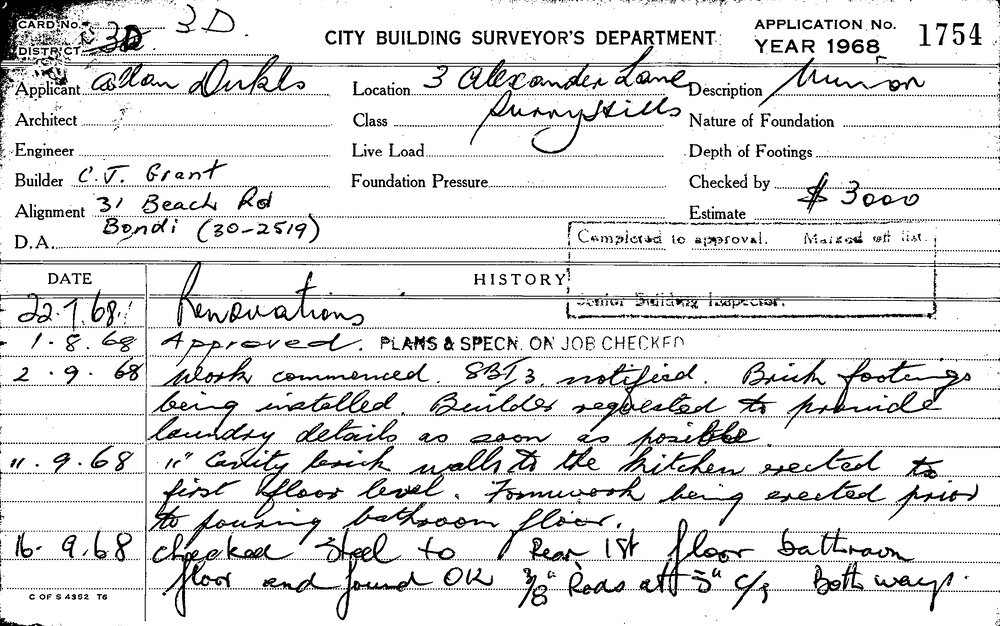 CARD No. 3D.
DISTRICT 3D
CITY BUILDING SURVEYOR'S DEPARTMENT
APPLICATION No. 1754
YEAR 1968
Applicant Allan Dirkls Location 3 Alexander Lane Description
Architect Class Surry Hills Nature of Foundation
Engineer Live Load Depth of Footings
Builder C.J. Grant Foundation Pressure Checked by
Alignment 31 Beach Rd Estimate $3000
D.A. Bondi (30-2519)
Completed to approval. Marked off list.
Senior Building Inspector.
DATE HISTORY
22.7.68. Renovations
1.8.68 Approved. PLANS & SPECN. ON JOB CHECKED
2.9.68 Work commenced. SBI/3. notified. Brick footings
being installed. Builder requested to provide
laundry details as soon as possible.
11.9.68 11" Cavity brick walls to the kitchen erected to
first floor level. Formwork being erected prior
to pouring bathroom floor.
16.9.68 checked Steel to Rear 1st floor bathroom
floor and found OK 3/8" Rods at 5" C/s Both ways.
C OF S 4352 T6